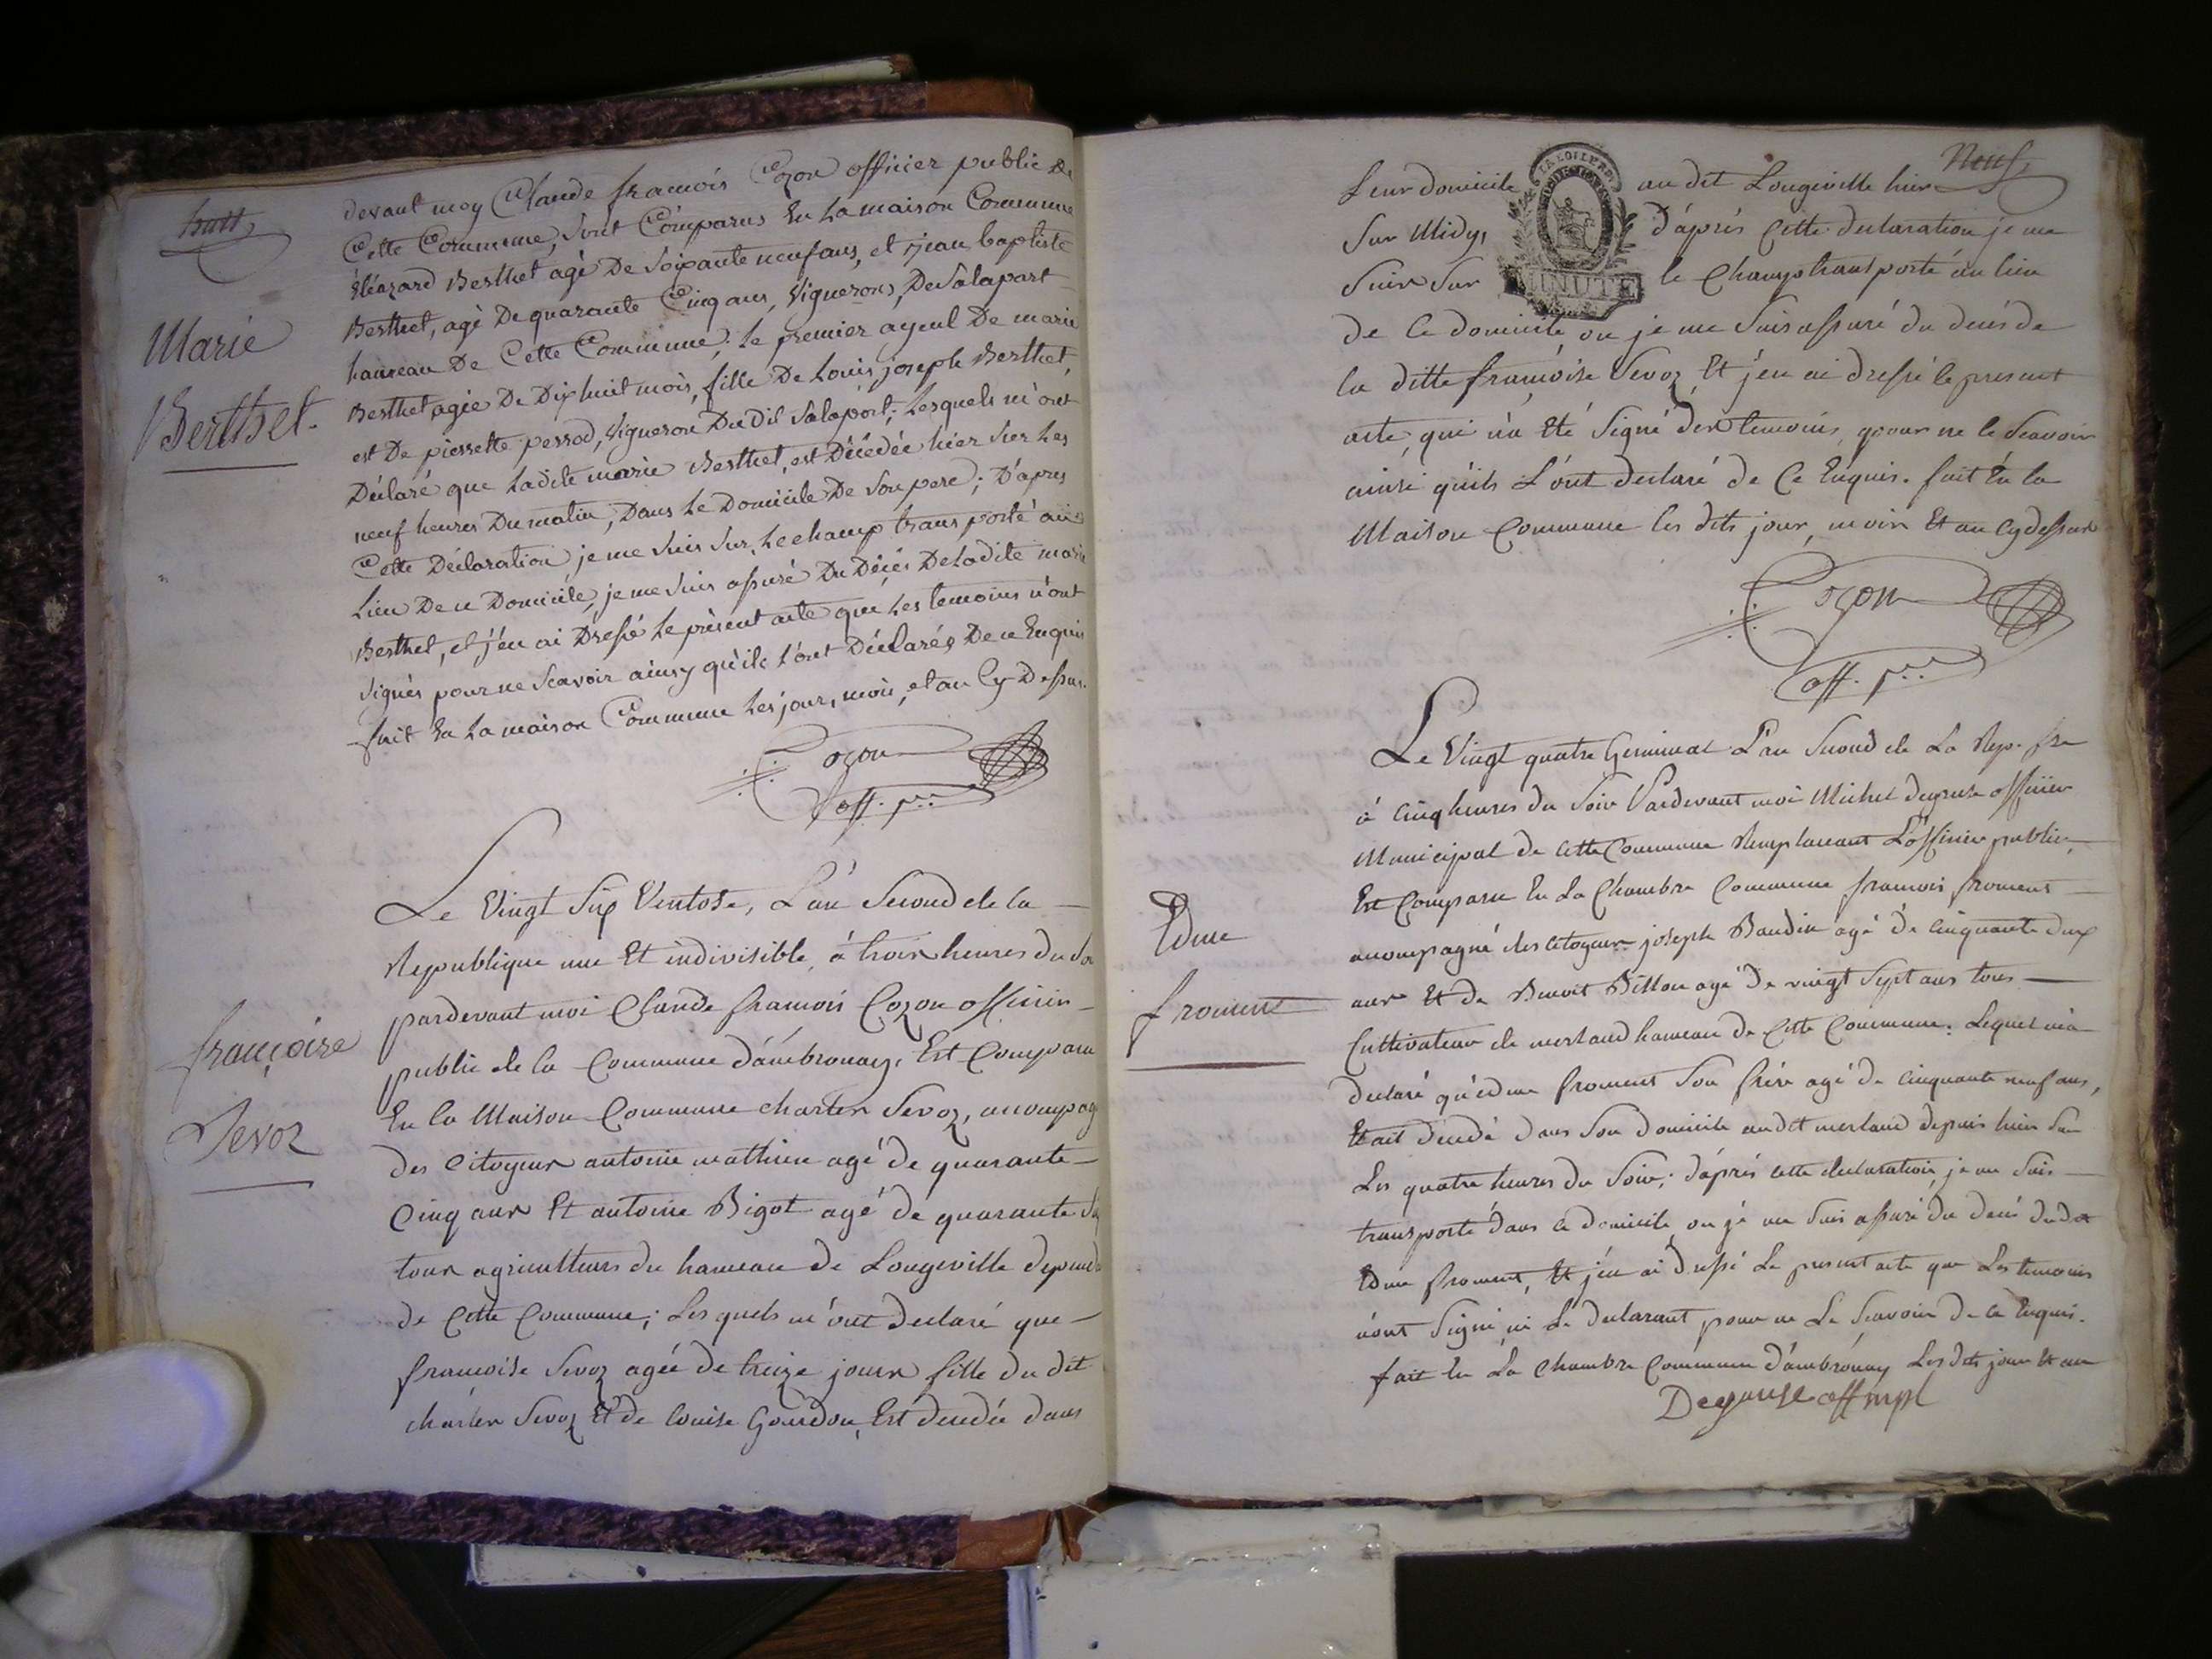 huit
devant moy Claude francois Cozon officier public De
Cette Commune, sont Comparus En La maison Commune
Eléazard Berthet agé De soixante neuf ans, et jean baptiste
Berthet, agé De quarante Cinq ans, Vignerons, De Salaport
hameau De Cette Commune, Le premier ayeul De marie
Berthet, agée De Dix huit mois, fille De Louis joseph Berthet,
et De pierrette perrod, Vigneron Du Dit Salaport; Lesquels m'ont
Déclaré que Ladite marie Berthet, est Décédée hier sur Les
neuf heures Du matin, Dans Le Domicile De Son pere; D'apres
Cette Déclaration, je me suis sur Le champ transporté au
Lieu De ce Domicile, je me suis assuré Du Décés De Ladite marie
Berthet, et j'en ai Dressé Le présent acte que Les temoins n'ont
signés pour ne Scavoir ainsy qu'ils l'ont Déclarés De ce Enquis
fait En La maison Commune Les jour, mois, et an Cy-Dessus.
Marie
Berthet.
Cozon
off. p...
Le Vingt Six Ventose, L'an Second de la
Republique une Et indivisible, à trois heures du So
pardevant moi Claude francois Cozon officier
public de la Commune d'ambronay, Est Comparu
En la Maison Commune charles Sevoz, accompag
des Citoyens antoine mathieu agé de quarante
Cinq ans Et antoine Bigot agé de quarante Si
tous agriculteurs du hameau de Longeville depend
de Cette Commune; Les quels m'ont declaré que
francoise Sevoz agée de treize jours fille du dit
charles Sevoz Et de Louise Gourdon, Est decedée dans
françoise
Sevoz
Neuf
Leur domicile au dit Longeville hier
Sur Midy, D'après Cette declaration je me
Suis Sur le Champ transporté au lieu
de Ce domicile, ou je me Suis assuré du decés de
la ditte francoise Sevoz Et j'en ai dressé le present
acte, qui n'a Eté Signé des temoins, pour ne le Scavoir
ainsi qu'ils L'ont declaré de Ce Enquis. fait En la
Maison Commune les dits jour, mois Et an Cy dessus
MINUTE
Cozon
off. p...
Le Vingt quatre Germinal L'an Second de La Rep. fse
à Cinq heures du Soir Pardevant moi Michel degruse officier
Municipal de Cette Commune Remplacant L'officier public,
Est Comparu En La Chambre Commune francois froment
accompagné des Citoyens joseph Baudin agé de Cinquante deux
ans Et de Benoit Billon agé De vingt Sept ans tous
Cultivateurs de merland hameau de Cette Commune. Lequel m'a
declaré qu'edme froment Son frére agé de Cinquante neuf ans,
Etait decedé dans Son domicile audit merland depuis hier Sur
Les quatre heures du Soir; d'aprés cette declaration, je me Suis
transporté dans ce domicile, ou je me Suis assuré du decés dudit
Edme froment, Et j'en ai dressé Le present acte que Les temoins
n'ont Signé, ni Le declarant pour ne Le Scavoir de ce Enquis.
fait En La Chambre Commune d'ambrônay Les dits jour Et an
Edme
froment
off mpl